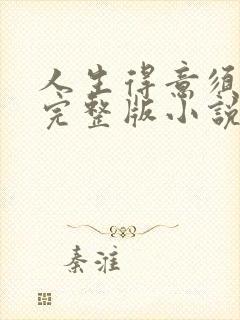 人生得意须
完整版小説
秦淮